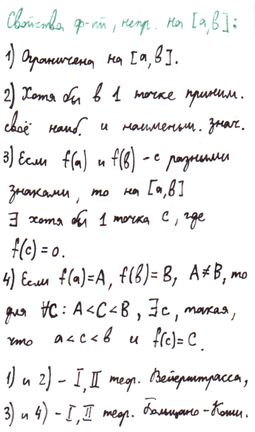 Свойства ф-ий, непр. на [a,b]:
1) Ограничена на [a,b].
2) Хотя бы в 1 точке приним.
своё наиб. и наименьш. знач.
3) Если f(a) и f(b) - с разными
знаками, то на [a,b]
∃ хотя бы 1 точка C, где
f(c)=0.
4) Если f(a)=A, f(b)=B, A≠B, то
для ∀C: A<C<B, ∃c, такая,
что a<c<b и f(c)=C.
1) и 2) - I, II теор. Вейерштрасса,
3) и 4) - I, II теор. Больцано-Коши.